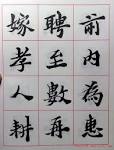 前內為惠
聘至數再
嫁孝人耕